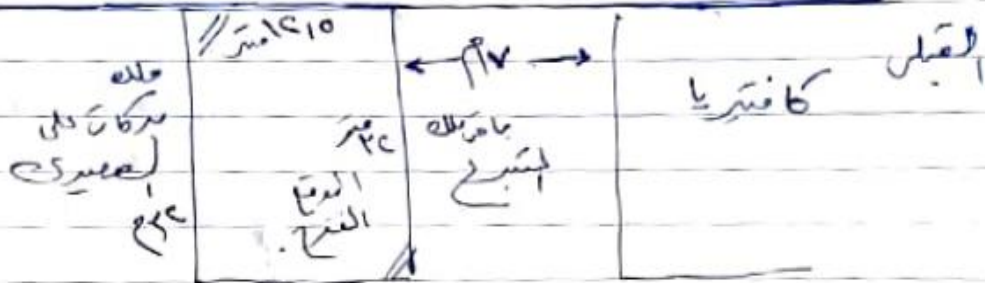 القبلى
كافتيريا
٧م
باقى ملك
المتبرع
١٢١٥ متر
٣٢ متر
الموقع
المقترح.
ملك
بركات على
الصعيدى
٣٢م